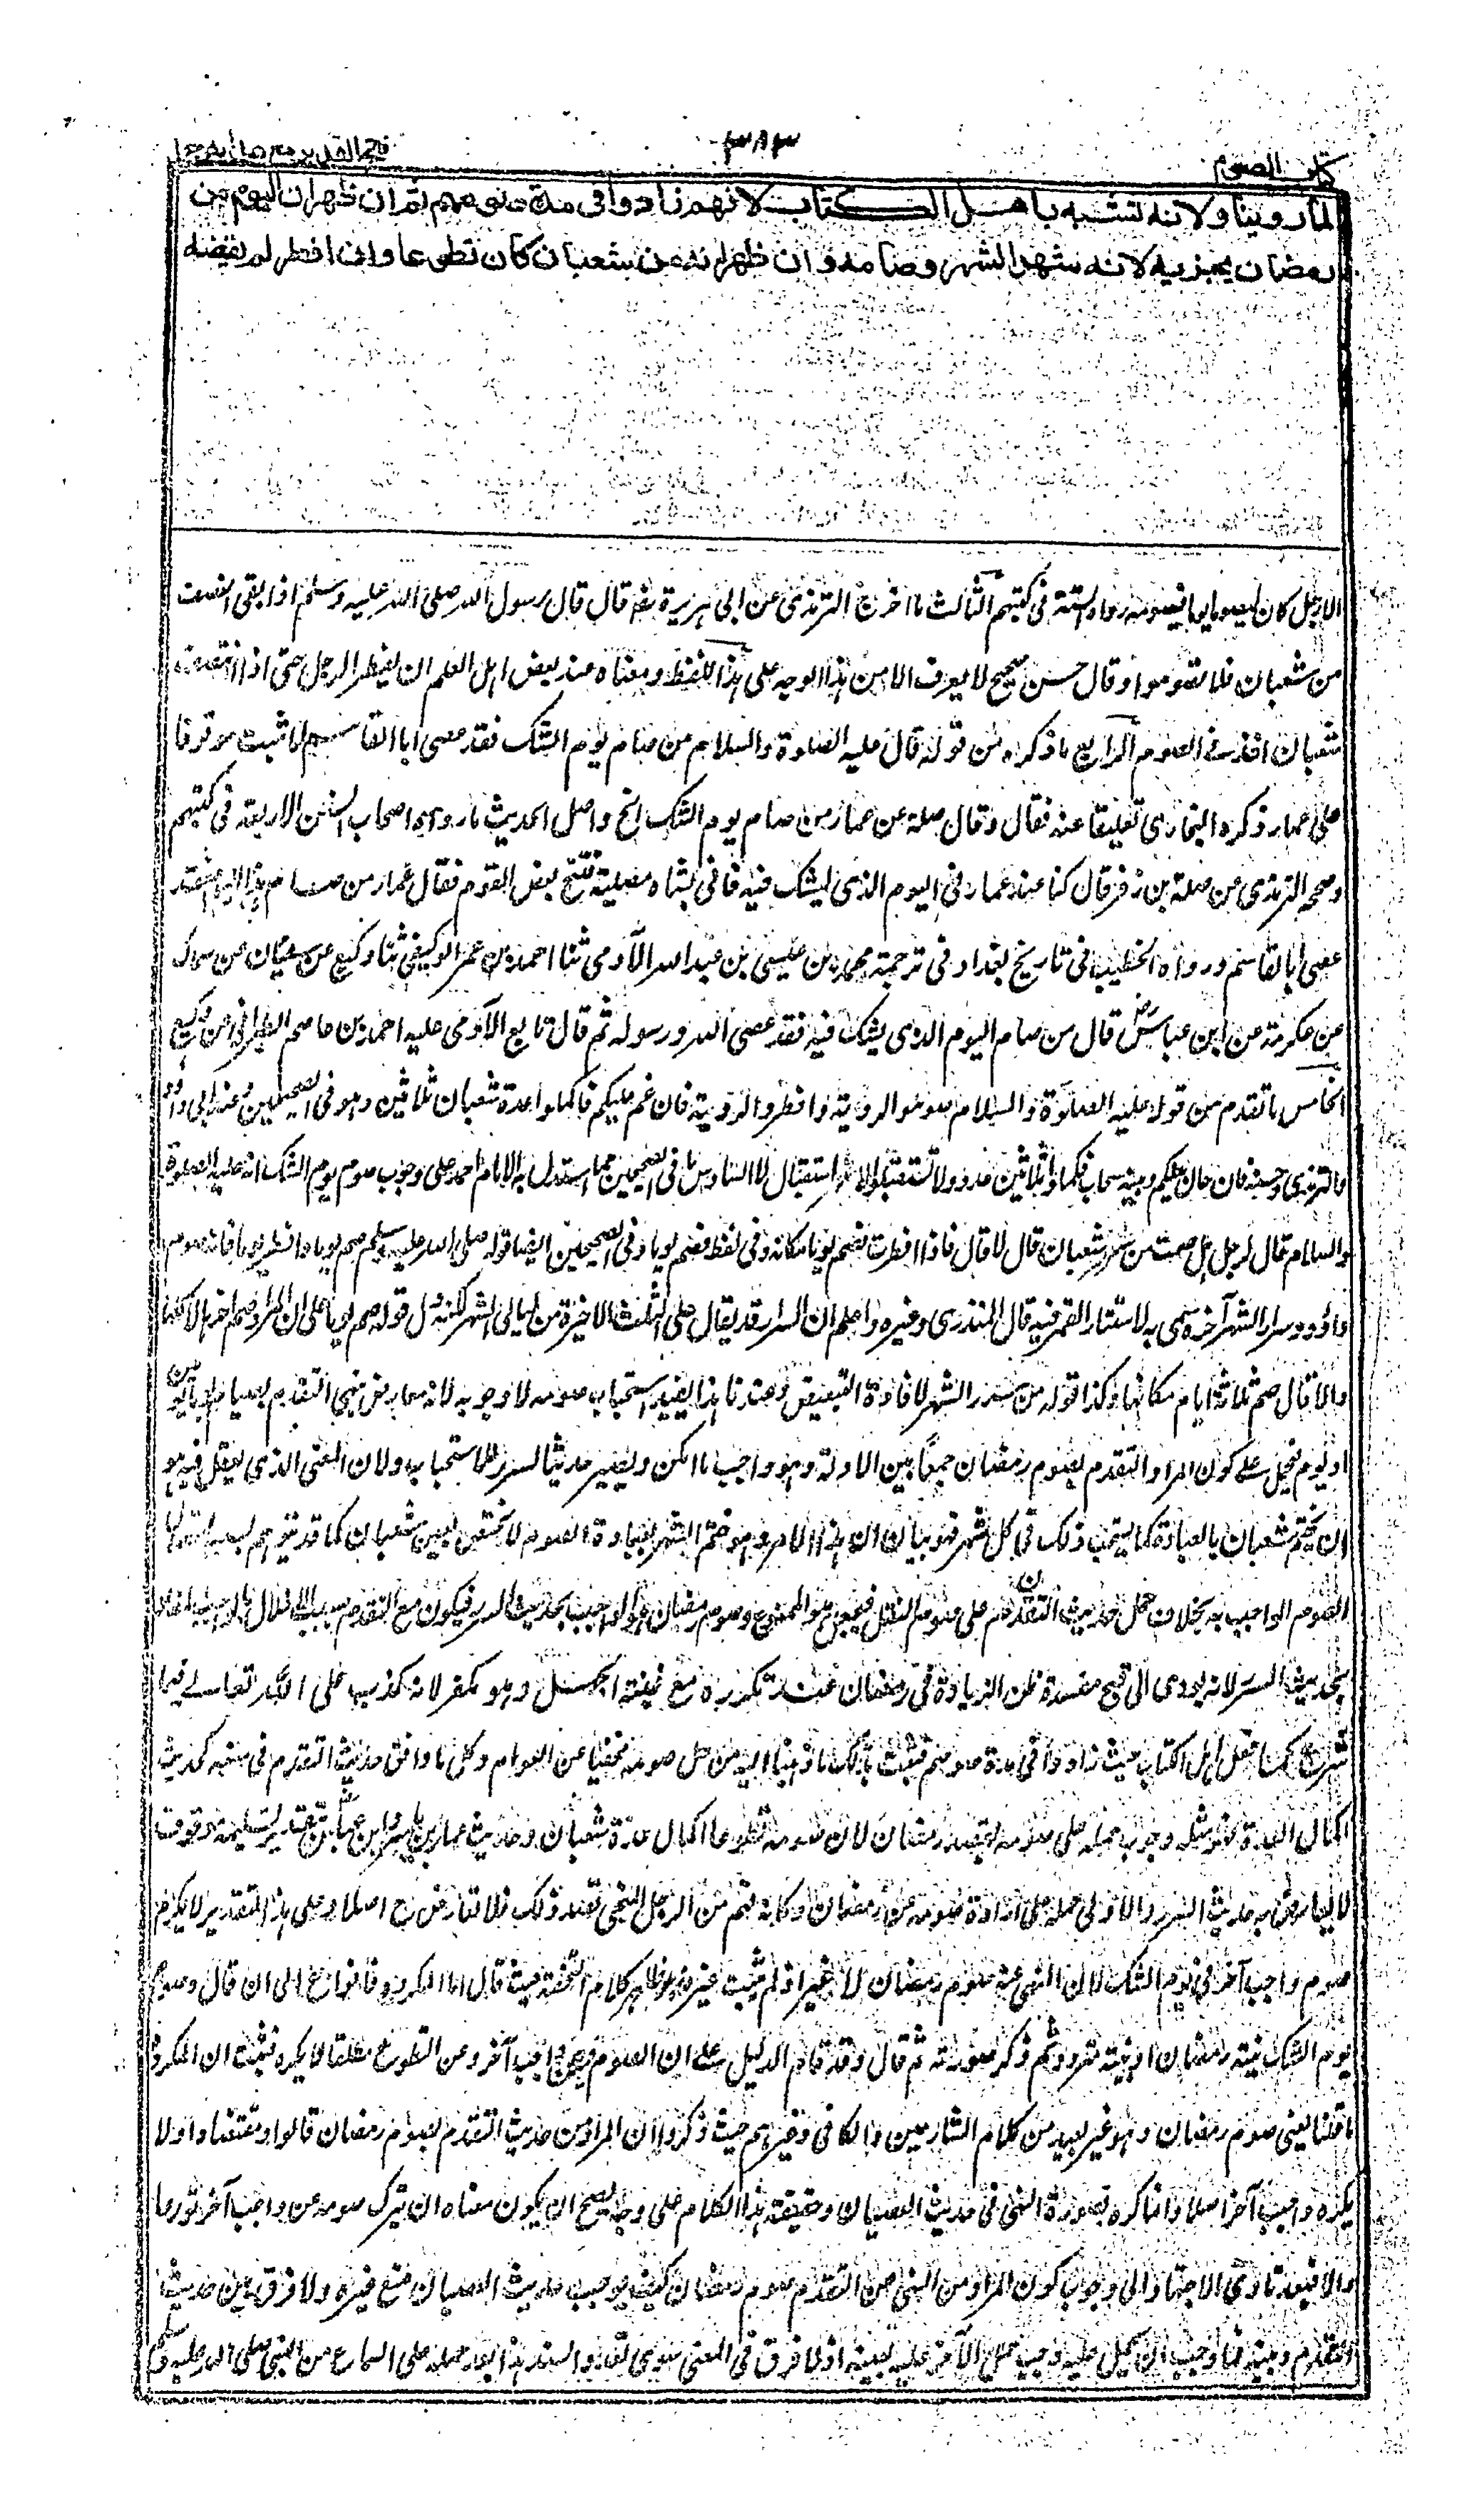 كتاب الصوم
٣٨٣
فتح القدير مع هداية جا
لما روينا ولانه تشبه باهل الكتاب لانهم زادوا فى مدة صومهم ثم ان ظهر ان اليوم من
رمضان يجزيه لانه شهد الشهر وصامه وان ظهر انه من شعبان كان تطوعا وان افطر لم يقضه
الا رجل كان يصوم يوما فيصومه رواه الستة فى كتبهم الثالث ما اخرج الترمذى عن ابى هريرة رض قال قال رسول الله صلى الله عليه وسلم اذا بقى النصف
من شعبان فلا تصوموا وقال حسن صحيح لا يعرف الا من هذا الوجه على هذا اللفظ ومعناه عند بعض اهل العلم ان يفطر الرجل حتى اذا انتصف
شعبان اخذ فى الصوم الرابع ما ذكره من قوله قال عليه الصلوة والسلام من صام يوم الشك فقد عصى ابا القاسم انما ثبت موقوفا
على عمار ذكره البخارى تعليقا عنه فقال وقال صلة عن عمار من صام يوم الشك الخ واصل الحديث ما رواه اصحاب السنن الاربعة فى كتبهم
وصححه الترمذى عن صلة بن زفر قال كنا عند عمار فى اليوم الذى يشك فيه فاتى بشاة مصلية فتنحى بعض القوم فقال عمار من صام هذا اليوم فقد
عصى ابا القاسم ورواه الخطيب فى تاريخ بغداد فى ترجمة محمد بن عيسى بن عبد الله الآدمى ثنا احمد بن عمر الوكيعى ثنا وكيع عن سفيان عن سماك
عن عكرمة عن ابن عباس رض قال من صام اليوم الذى يشك فيه فقد عصى الله ورسوله ثم قال تابع الآدمى عليه احمد بن عاصم الطبرانى عن وكيع
الخامس ما تقدم من قوله عليه الصلوة والسلام صوموا لرؤيته وافطروا لرؤيته فان غم عليكم فاكملوا عدة شعبان ثلاثين وهو فى الصحيحين وعند ابى داؤد
والترمذى وحسنه فان حال بينكم وبينه سحاب فكملوا ثلاثين عدد ولا تستقبلوا الشهر استقبالا السادس ما فى الصحيحين مما استدل به الامام احمد على وجوب صوم يوم الشك انه عليه الصلوة
والسلام قال لرجل هل صمت من سرر شعبان قال لا قال فاذا افطرت فصم يوما مكانه وفى لفظ فصم يوما وفى الصحيحين ايضا قوله صلى الله عليه وسلم صم يوما وافطر يوما فانه صوم
داؤد وسرار الشهر آخره سمى به لاستتار القمر فيه قال المنذرى وغيره واعلم ان السرار قد يقال على الثلث الاخيرة من ليالى الشهر لكنه دل قوله صم يوما على ان المراد صم آخرها لا كلها
والا قال صم ثلاثة ايام مكانها وكذا قوله من سرر الشهر لافادة التبعيض وعندنا هذا يفيد استحباب صومه لا وجوبه لانه معارض بنهى التقدم بصيام يوم او يومين
او يوم فيحمل على كون المراد التقدم بصوم رمضان جمعا بين الادلة وهو واجب ما امكن ويصير حديث السرر للاستحباب ولان المعنى الذى يعقل فيه هو
ان يختم شعبان بالعبادة كما يستحب ذلك فى كل شهر فهو بيان ان هذا الامر وهو ختم الشهر بعبادة الصوم لا يختص بغير شعبان كما قد يتوهم بسبب اتصاله
الصوم الواجب به بخلاف حمل حديث التقدم على صوم النفل فيجعل هو الممنوع وصوم رمضان هو الواجب بحديث السرر فيكون
بحديث السرر لانه يؤدى الى فتح مفسدة ظن الزيادة فى رمضان عند تكرره مع غلبة الجهل وهو مكفر لانه كذب على الله تعالى فيما
شرع كما فعل اهل الكتاب حيث زادوا فى مدة صومهم فثبت بذلك ما ذهبنا اليه من حل صومه مخفيا عن العوام وكل ما وافق حديث التقدم فى منعه كحديث
اكمال العدة فهو مثله وجوب حمله على صومه بقصد رمضان لان صومه تطوعا اكمال عدة شعبان وحديث عمار بن ياسر وابن عباس بتقدير تسليمه موقوف
لا يعارض به حديث السرر والاولى حمله على ارادة صومه عن رمضان وكانه فهم من الرجل المتنحى قصد ذلك فلا تعارض ح اصلا وعلى هذا التقدير لا يكره
صوم واجب آخر فى يوم الشك لان المنهى عنه صوم رمضان لا غير اذ لم يثبت غيره وهو ظاهر كلام التحفة حيث قال اما المكروه فانواع الى ان قال وصوم
يوم الشك بنية رمضان او بنية مترددة ثم ذكر صورته ثم قال وقد قام الدليل على ان الصوم فيه عن واجب آخر وعن التطوع مطلقا لا يكره فثبت ان المكروه
ما قلنا يعنى صوم رمضان وهو غير بعيد من كلام الشارحين والكافى وغيرهم حيث ذكروا ان المراد من حديث التقدم بصوم رمضان قالوا ومقتضاه ان لا
يكره واجب آخر اصلا وانما كره بصورة النهى فى حديث العصيان وحقيقة هذا الكلام على وجه يصح ان يكون معناه ان ترك صومه عن واجب آخر تورعا
والا فبعد تأدى الاجتهاد الى وجوب كون المراد من النهى عن التقدم صوم رمضان كيف يوجب حديث العصيان منع غيره ولا فرق بين حديث
التقدم وبينه فما وجب ان يحمل عليه وجب حمل الآخر عليه بعينه اذ لا فرق فى المعنى سوى تعدد السند هذا بعد حمله على السماع من النبى صلى الله عليه وسلم